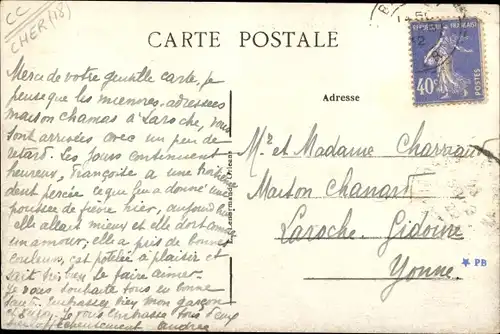 CC
CHER (18)
CARTE POSTALE
RÉPUBLIQUE FRANÇAISE
40c
POSTES
Merci de votre gentille carte. Je
pense que les miennes adressées
maison Chamas à Laroche, vous
sont arrivées avec un peu de
retard. Les jours continuent
heureux, Françoise a une
dent percée ce qui lui a donné une
poussée de fièvre hier, aujourd'hui
elle allait mieux et elle dort comme
un amour, elle a pris de bonnes
couleurs, est potelée à plaisir et
sait très bien se faire aimer.
Je vous souhaite tous en bonne
santé. Embrassez bien mon garçon
Je vous embrasse tous
affectueusement Andrée
Adresse
Mr et Madame
Maison Chanard
Laroche-Gidoine
Yonne
★ PB